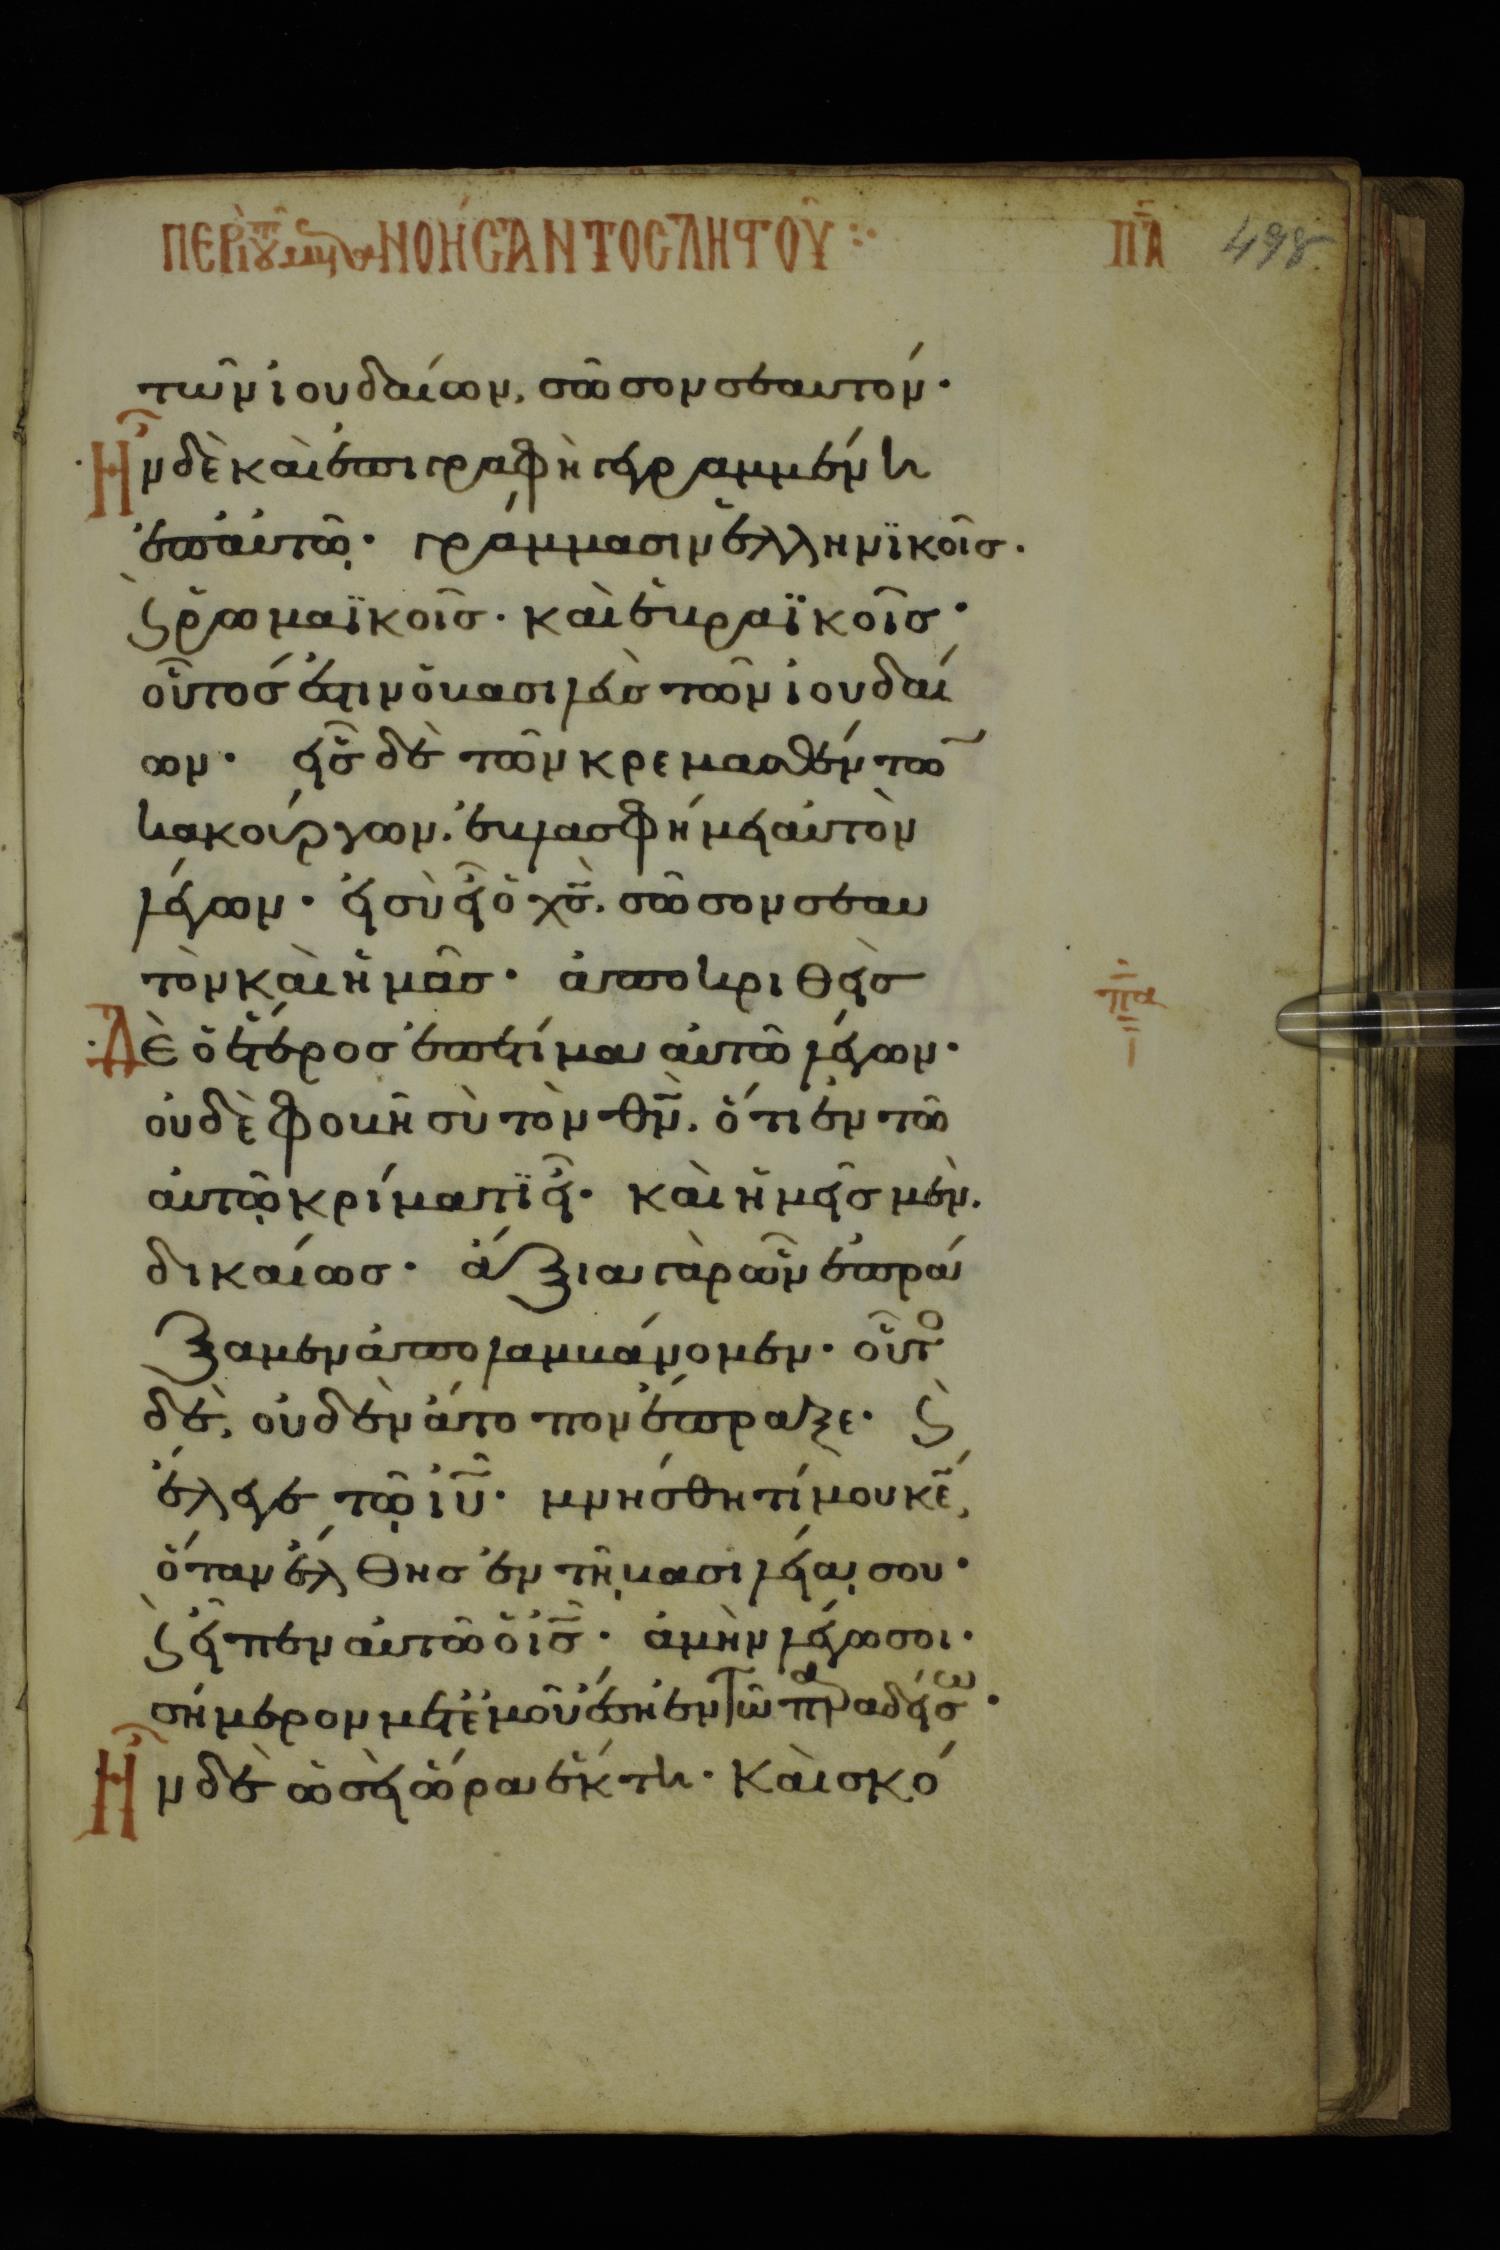 ΠΕΡῚ τοῦ μεταΝΟΉϹΑΝΤΟϹ ΛΗϹΤΟΥ ΠΑ 498
τῶν ἰουδαίων, σῶσον σεαυτόν·
Ἦν δὲ καὶ ἐπιγραφὴ γεγραμμένη
ἐπ' αὐτῷ· γράμμασιν ἑλληνϊκοῖς·
ϛ ῥωμαϊκοῖς· καὶ ἑβραϊκοῖς·
οὗτός ἐστιν ὁ βασιλεὺς τῶν ἰουδαί
ων· εἷς δὲ τῶν κρεμασθέντω
κακούργων. ἐβλασφήμει αὐτὸν
λέγων· εἰ σὺ εἶ ὁ χς. σῶσον σεαυ
τὸν καὶ ἡμᾶς· ἀποκριθεὶς
Δὲ ὁ ἕτερος ἐπετίμα αὐτῶ λέγων·
οὐδὲ φοβῆ σὺ τὸν θν. ὅτι ἐν τῶ
αὐτῷ κρίματϊ εἶ· καὶ ἡμεῖς μὲν.
δικαίως· ἄξια γὰρ ὧν ἐπρά
ξαμεν ἀπολαμβάνομεν· οὗτο
δὲ, οὐδὲν ἄτοπον ἔπραξε· ϛ
ἔλεγε τῷ ιυ· μνήσθητί μου κε,
ὅταν ἔλθης ἐν τῇ βασιλείᾳ σου·
ϛ εἶπεν αὐτῶ ὁ ις· ἀμὴν λέγω σοι·
σήμερον μετ' ἐμοῦ ἔση ἐν τῶ παραδείσω·
Ἦν δὲ ὡσεὶ ὥρα ἕκτη· καὶ σκό
πα